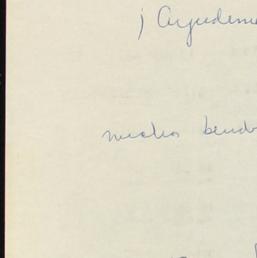 ¡ Ayudeme
muchas bend